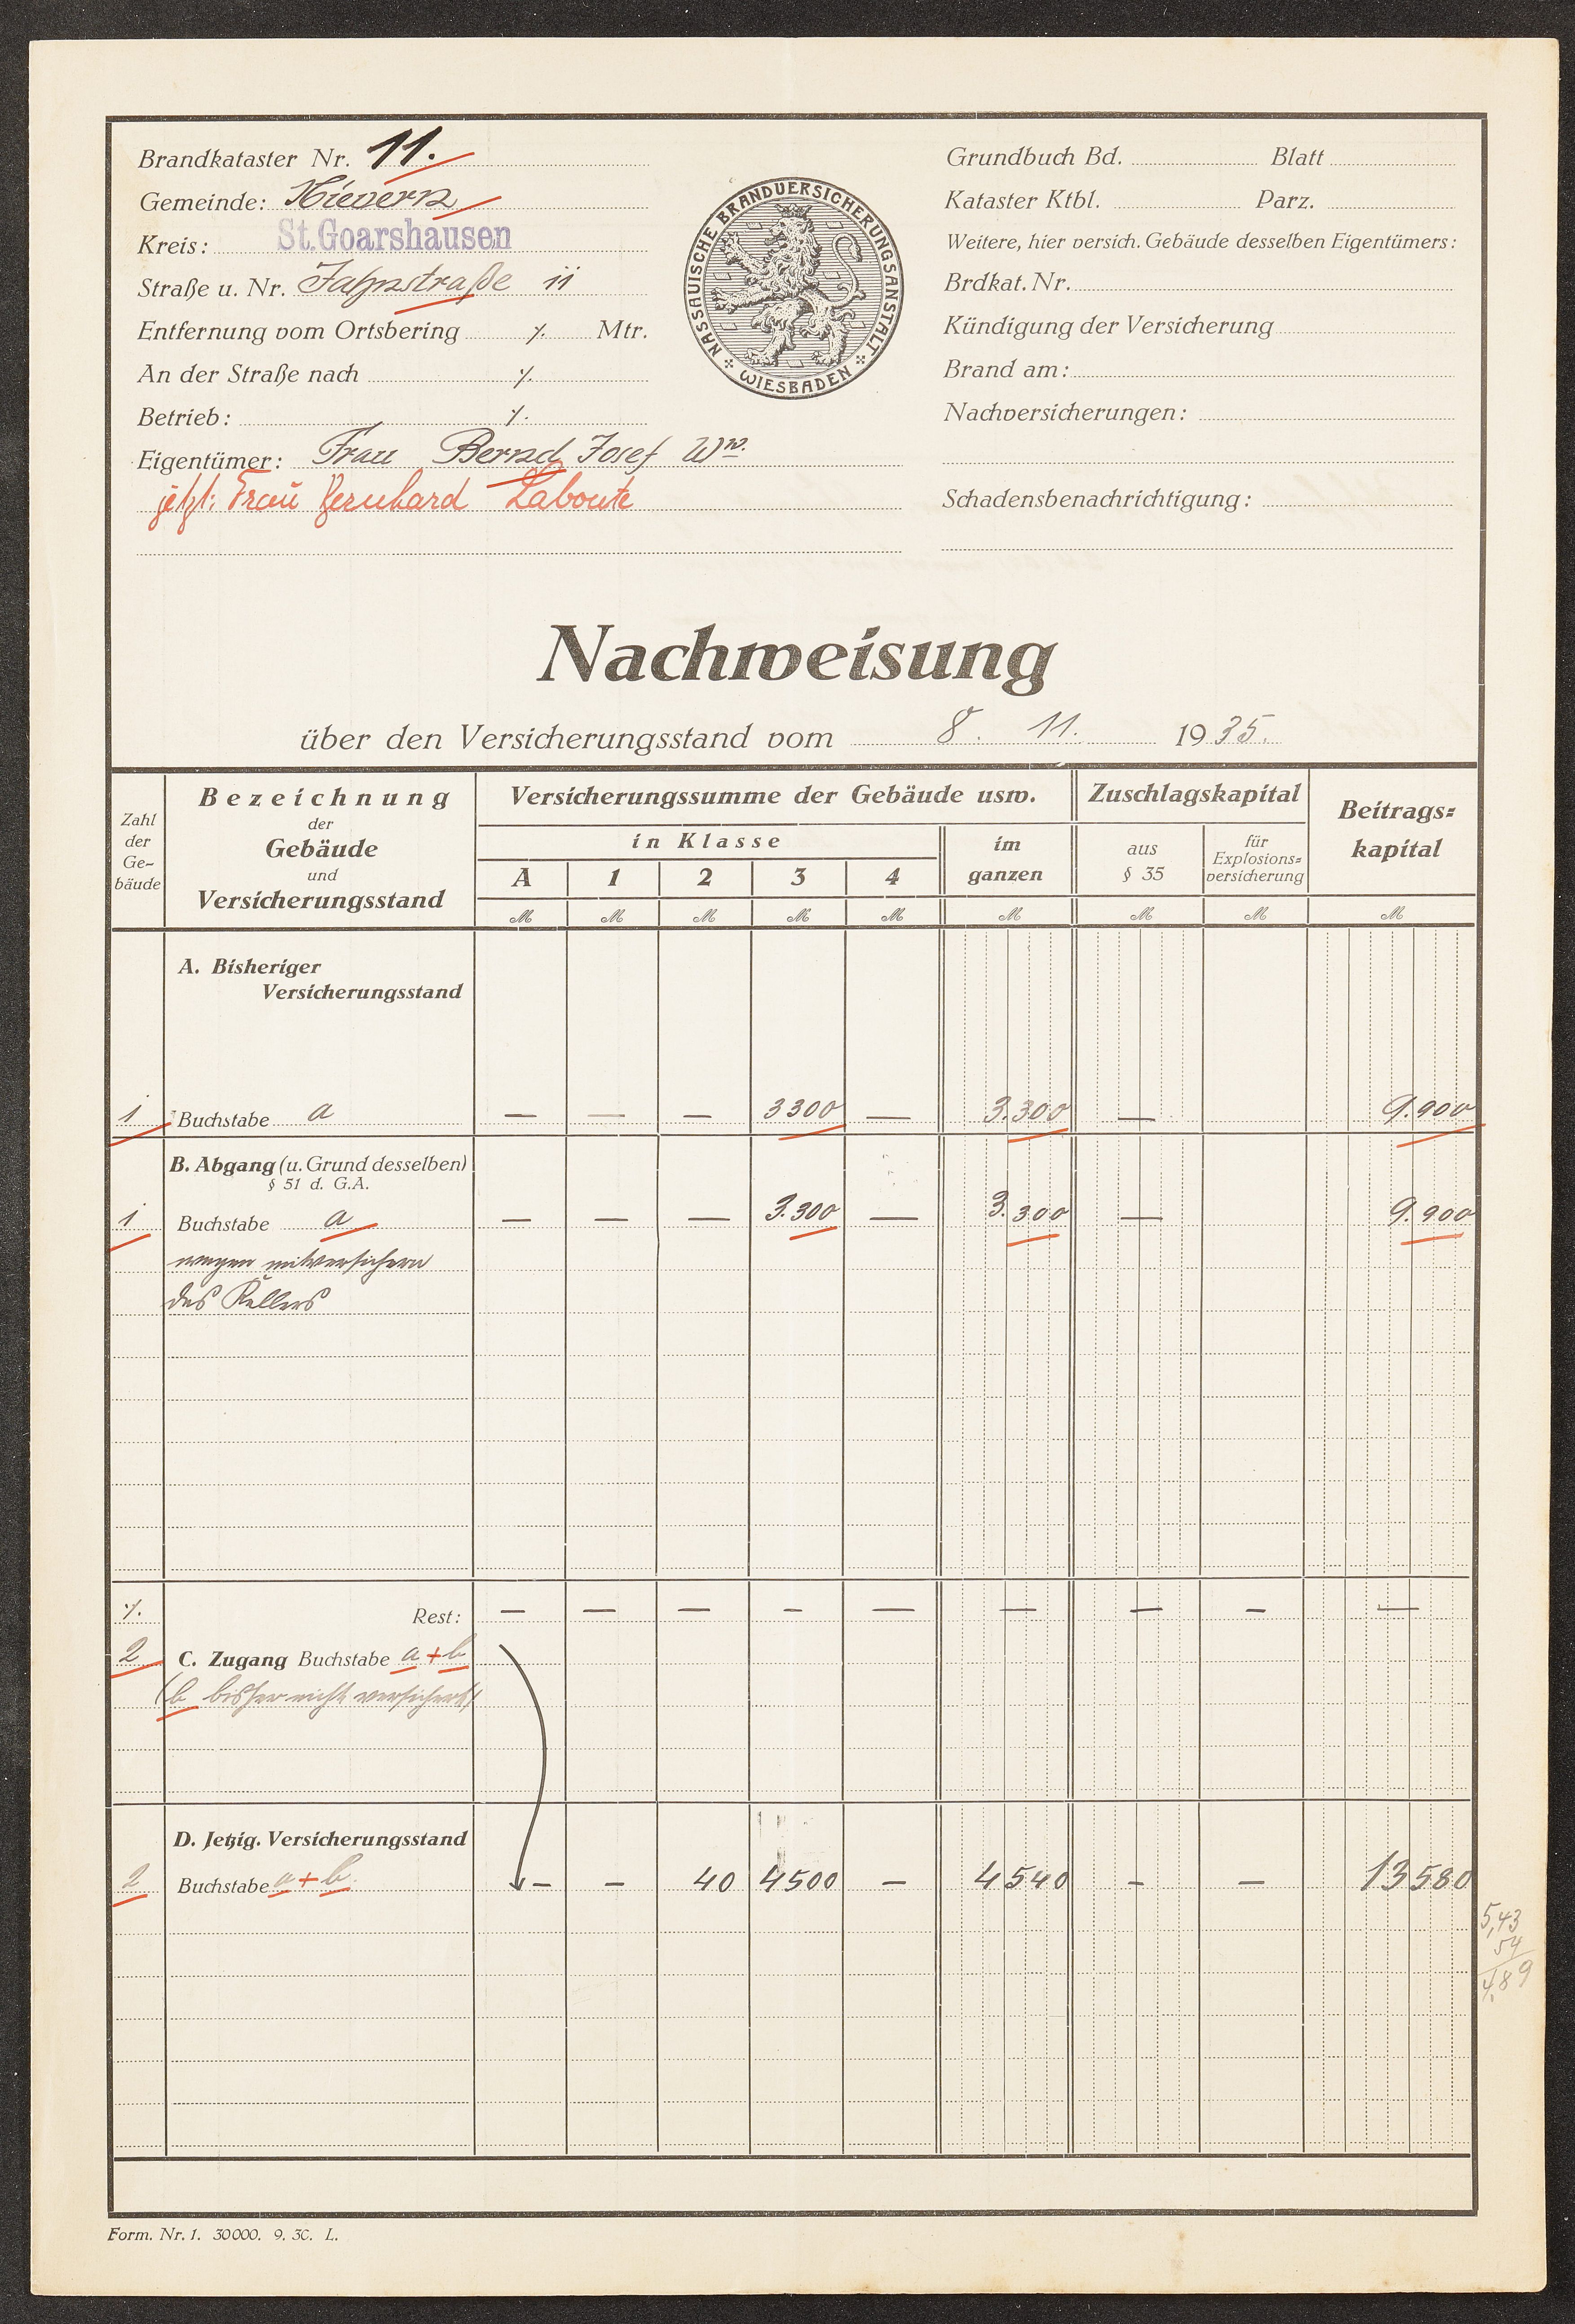 Brandkataster Nr. 11.
Gemeinde: Nievern
Kreis: St. Goarshausen
Straße u. Nr. Jahnstraße 11
Entfernung vom Ortsbering ⁒ Mtr.
An der Straße nach ⁒
Betrieb: ⁒
Eigentümer: Frau Bernd Josef Ww.
jetzt: Frau Bernhard Laboute
NASSAUISCHE BRANDVERSICHERUNGSANSTALT
WIESBADEN
Grundbuch Bd. Blatt
Kataster Ktbl. Parz.
Weitere, hier versich. Gebäude desselben Eigentümers:
Brdkat. Nr.
Kündigung der Versicherung
Brand am:
Nachversicherungen:
Schadensbenachrichtigung:
Nachweisung
über den Versicherungsstand vom 8. 11. 1935.
Zahl der Ge-bäude
Bezeichnung der Gebäude und Versicherungsstand
Versicherungssumme der Gebäude usw.
in Klasse
A 1 2 3 4
im ganzen
Zuschlagskapital
aus § 35
für Explosions=versicherung
Beitrags=kapital
M M M M M M M M M
A. Bisheriger
Versicherungsstand
1 Buchstabe a — — — 3300 — 3.300 — 9.900
B. Abgang (u. Grund desselben)
§ 51 d. G.A.
1 Buchstabe a — — — 3.300 — 3.300 — 9.900
wegen mitversichern
des Kellers
⁒ Rest: — — — — — — — — —
2 C. Zugang Buchstabe a + b
(b bisher nicht versichert)
D. Jetzig. Versicherungsstand
2 Buchstabe a + b. — — 40 4500 — 4540 — — 13580
5,43
54
4,89
Form. Nr. 1. 30000. 9. 30. L.